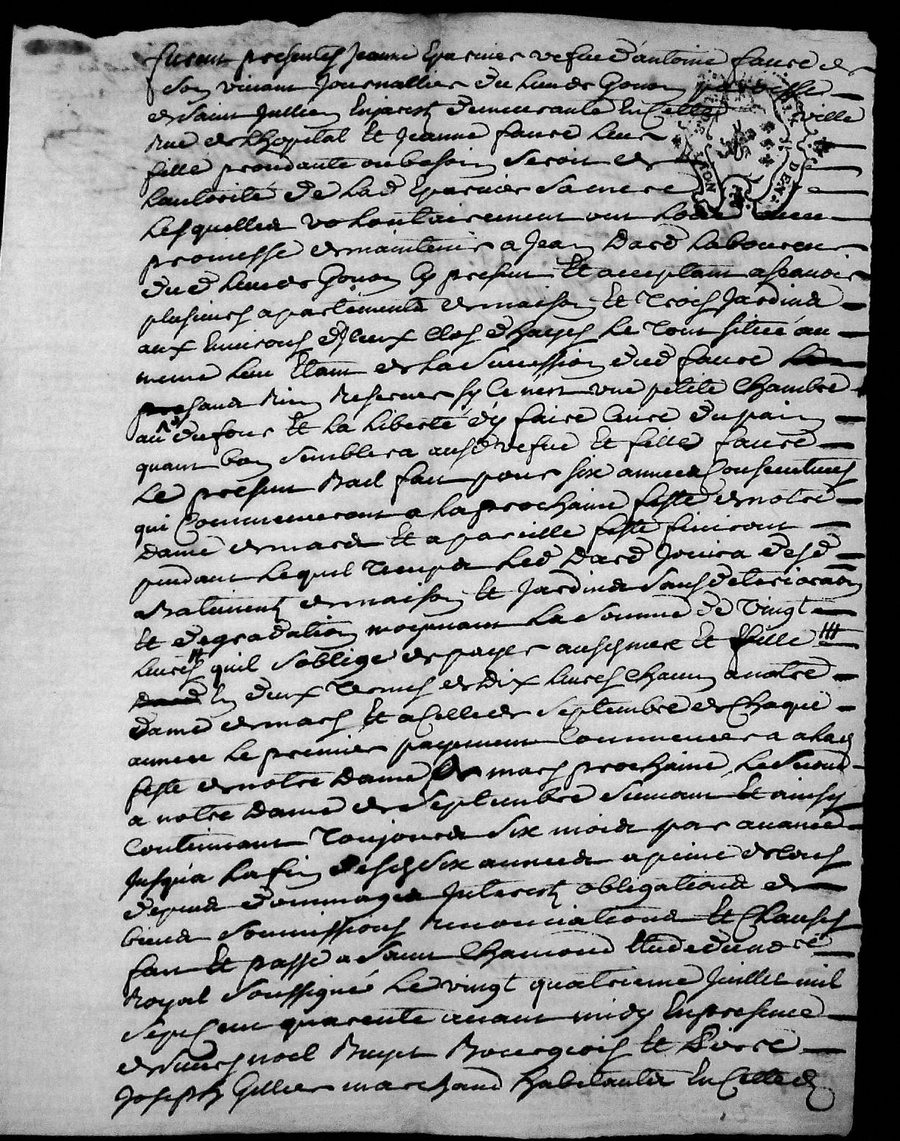 furent presentes Jeanne Eparvier vefue d'antoine faure de
son vivant Journallier du lieu de Gonon parroisse
de saint Jullien Enjarest demeurante En Cette ville
Rue de lhopital Et Jeanne faure leur
fille procedante au besoin seroit de
lautorité de lad Eparvier sa mere
Lesquelles volontairement ont loué avec
promesse de maintenir a Jean Dard laboureur
dud lieu de Gonon Cy present Et acceptant a scavoir
plusieurs apartements de maison Et trois Jardins
aux Environs Et Clos d'hayes le tout situé au
meme lieu Etant de la succession dud faure
sans Rien Reserver sy Ce n'est une petite Chambre
au du four Et la liberté d'y faire Cuire du pain
quant bon semblera auxd vefue Et fille faure
le present Bail fait pour six années Consecutives
qui Commenceront a la prochaine feste de notre
dame de mars Et a pareille feste finiront
pendant lequel temps led Dard Jouira desd
Batiments de maison Et Jardins sans deterioration
Et degradation moyenant la somme de vingt
livres qu'il s'oblige de payer auxd mere Et fille
En deux termes de dix livres Chacun a notre
dame de mars Et a Celle de septembre de Chaque
année le premier payement Commencera a lad
feste de notre dame de mars prochaine le second
a notre Dame de septembre suivant Et ainsy
Continuant toujours six mois par avance
Jusqu'a la fin desd six années a peine de tous
depens dommages Interests obligations de
biens soumissions Renonciations Et Clauses
fait Et passé a saint Chamond Etude du nore
Royal soussigné le vingt quatrieme Juillet mil
sept Cent quarente avant midy En presence
de sieurs noel Bruyet Bourgeois Et Pierre
Joseph Gillier marchand habitants En Cette d